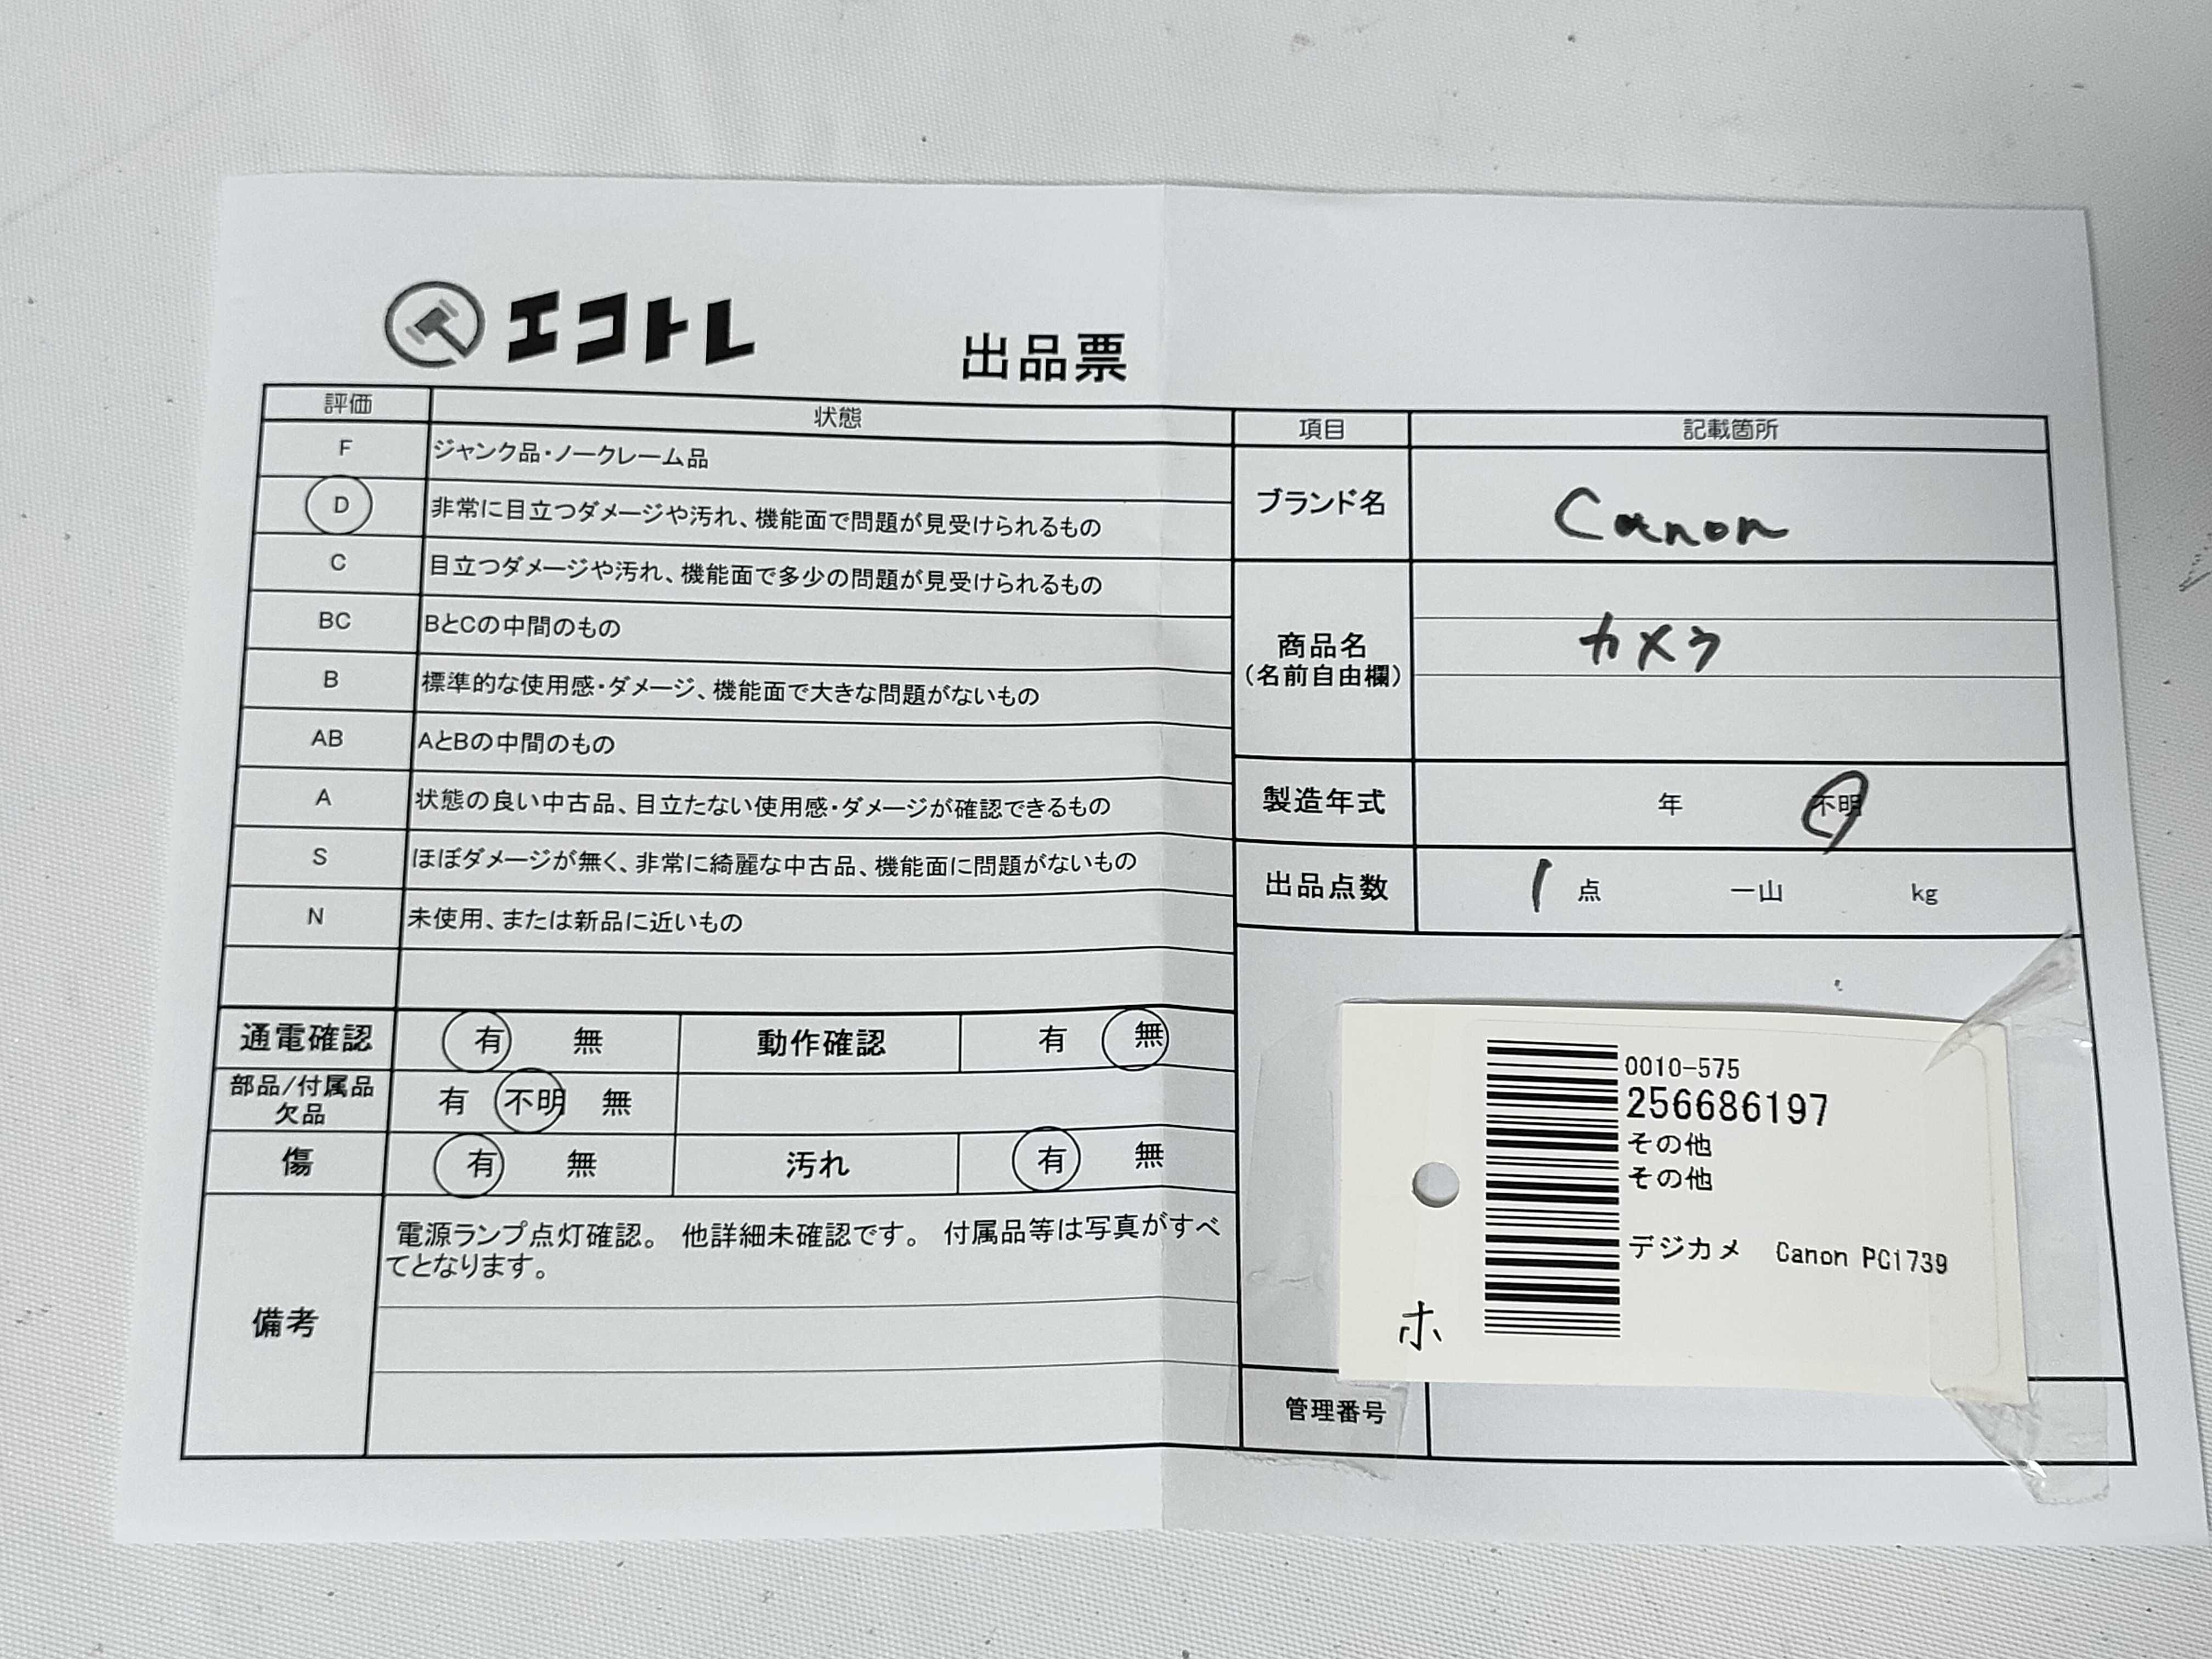 エコトレ
出品票
評価 状態
F ジャンク品・ノークレーム品
D 非常に目立つダメージや汚れ、機能面で問題が見受けられるもの
C 目立つダメージや汚れ、機能面で多少の問題が見受けられるもの
BC BとCの中間のもの
B 標準的な使用感・ダメージ、機能面で大きな問題がないもの
AB AとBの中間のもの
A 状態の良い中古品、目立たない使用感・ダメージが確認できるもの
S ほぼダメージが無く、非常に綺麗な中古品、機能面に問題がないもの
N 未使用、または新品に近いもの
通電確認 有 無 動作確認 有 無
部品/付属品
欠品 有 不明 無
傷 有 無 汚れ 有 無
備考
電源ランプ点灯確認。 他詳細未確認です。 付属品等は写真がすべ
てとなります。
項目 記載箇所
ブランド名 Canon
商品名
(名前自由欄)
カメラ
製造年式 年 不明
出品点数 1 点 一山 kg
0010-575
256686197
その他
その他
デジカメ Canon PC1739
ホ
管理番号